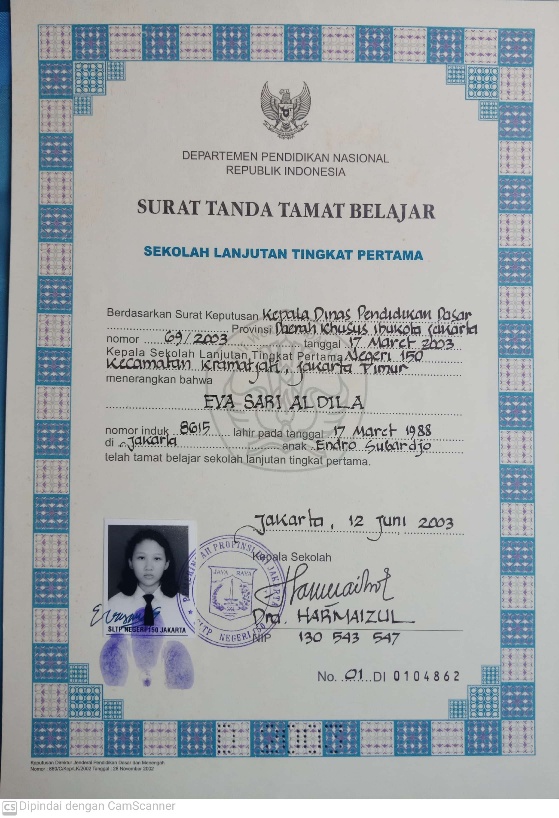 DEPARTEMEN PENDIDIKAN NASIONAL
REPUBLIK INDONESIA
SURAT TANDA TAMAT BELAJAR
SEKOLAH LANJUTAN TINGKAT PERTAMA
Berdasarkan Surat Keputusan Kepala Dinas Pendidikan Dasar
Provinsi Daerah Khusus Ibukota Jakarta
nomor 69/2003 tanggal 17 Maret 2003
Kepala Sekolah Lanjutan Tingkat Pertama Negeri 150
Kecamatan Kramatjati, Jakarta Timur
menerangkan bahwa
EVA SARI ALDILA
nomor induk 8615 lahir pada tanggal 17 Maret 1988
di Jakarta anak Endro Subardjo
telah tamat belajar sekolah lanjutan tingkat pertama.
Jakarta, 12 Juni 2003
Kepala Sekolah
PEMERINTAH PROPINSI DKI JAKARTA
JAYA RAYA
SLTP NEGERI 150
SLTP NEGERI 150 JAKARTA
Dra. HARMAIZUL
NIP 130 543 547
No. 01 DI 0104862
Keputusan Direktur Jenderal Pendidikan Dasar dan Menengah
Tanggal : 26 November 2002
CS Dipindai dengan CamScanner